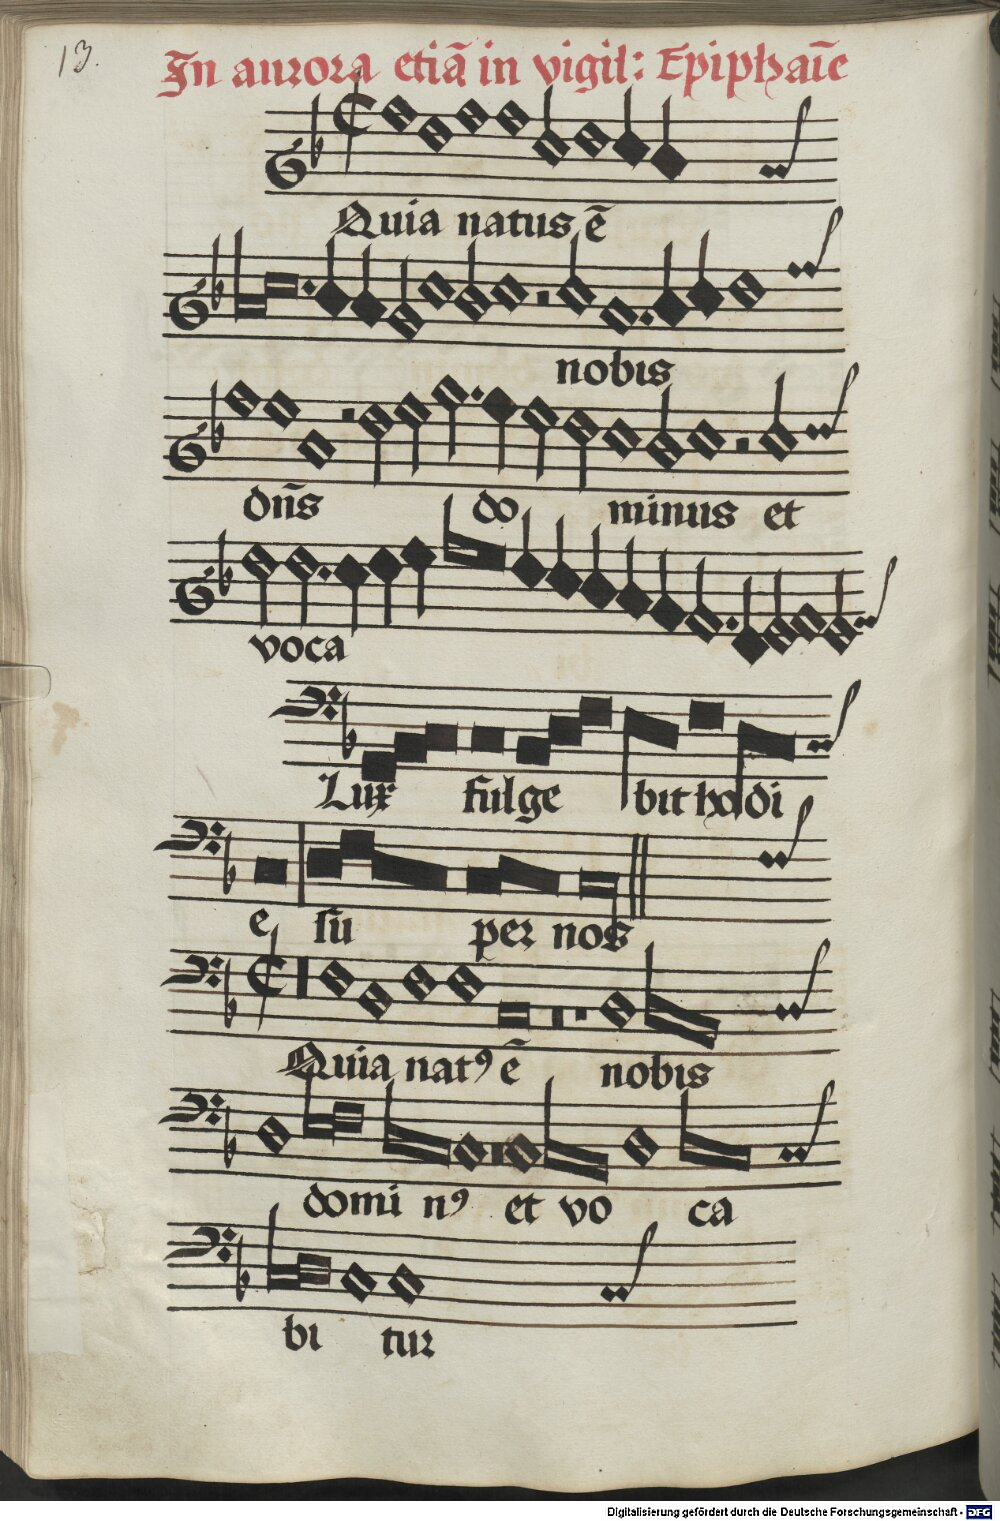 13.
In aurora etiā in vigil: Epiphaīe
Quia natus ē
nobis
dn̄s do minus et
voca
Lux fulge bit hodi
e sū per nos
Quia natꝰ ē nobis
domi nꝰ et vo ca
bi tur
Digitalisierung gefördert durch die Deutsche Forschungsgemeinschaft - DFG